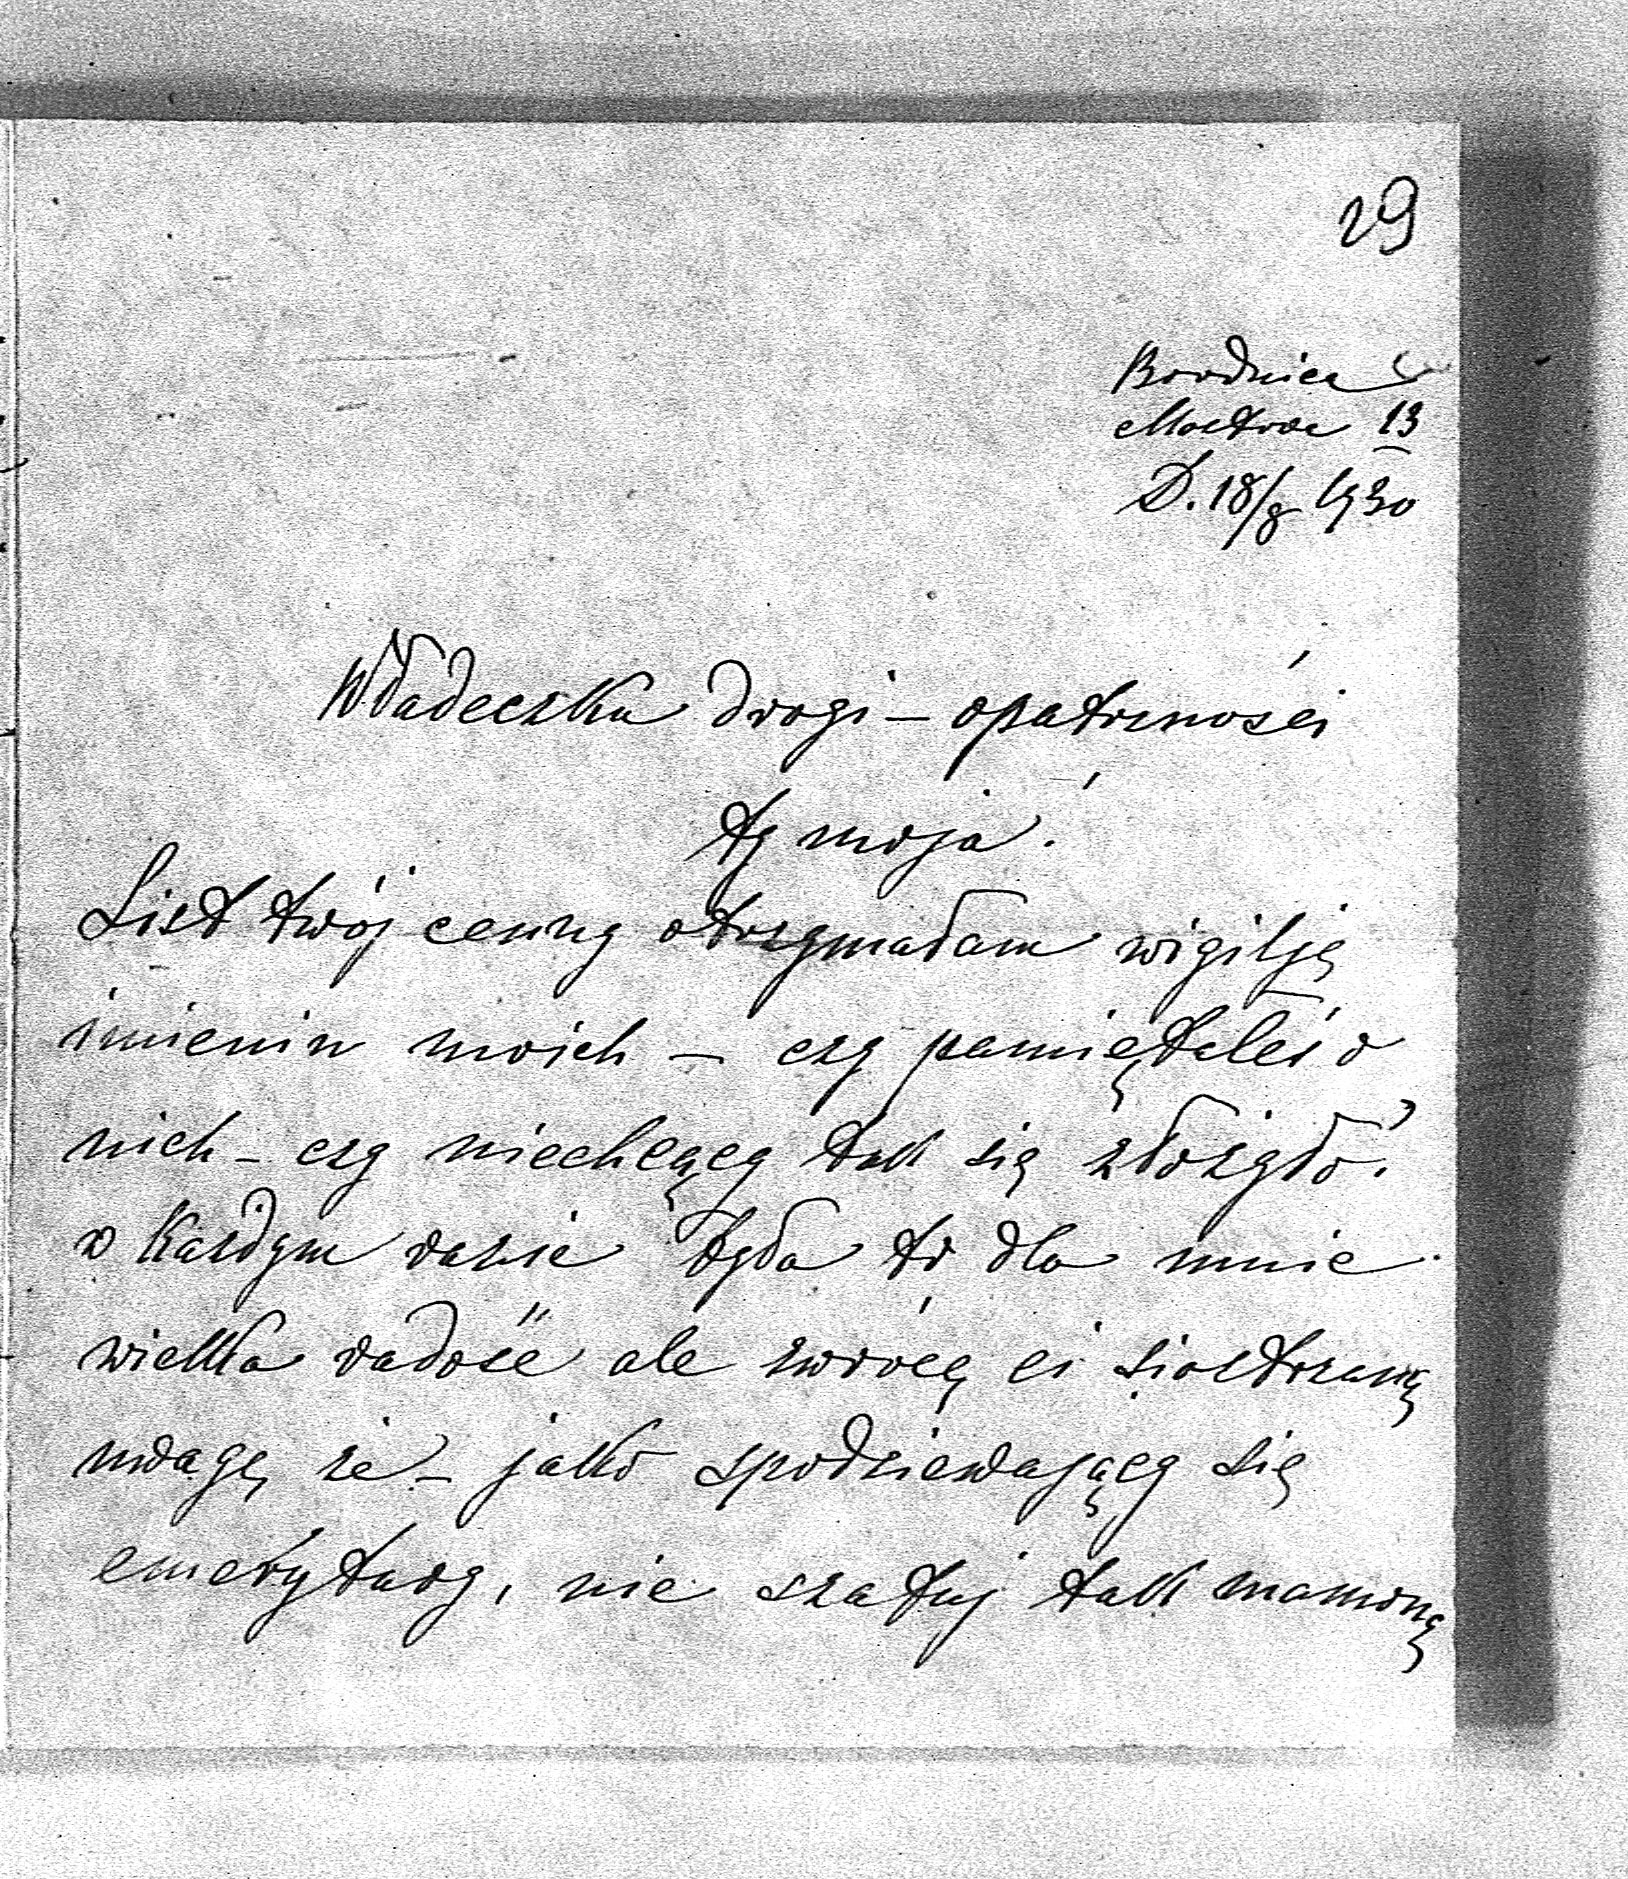 29
Brodnica
Mostowa 13
D. 18/8 1930
Władeczku drogi – opatrzności
ty moja!
List twój cenny otrzymałam wigilję
imienin moich – czy pamiętałeś o
nich – czy niechcący tak się złożyło?
w każdym razie była to dla mnie
wielka radość ale zwrócę ci siostrzaną
uwagę że – jako spodziewający się
emerytury, nie szafuj tak mamoną